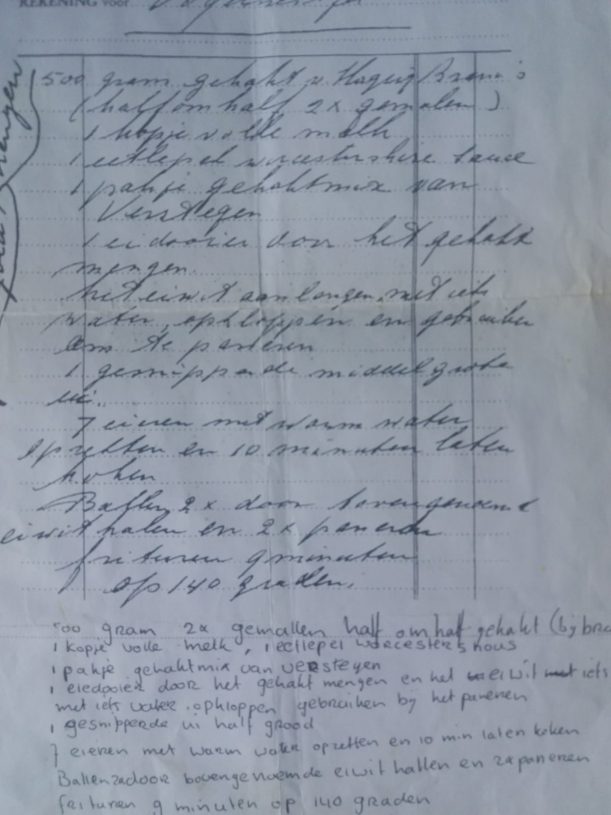 REKENING voor
500 gram gehakt v. Slagerij
(half om half 2x gemalen)
1 kopje volle melk
1 eetlepel worcestershire sauce
1 pakje gehaktmix van
Verstegen
1 eidooier door het gehakt
mengen.
het eiwit aanlengen met iets
water, opkloppen en gebruiken
om te paneren
1 gesnipperde middelgrote
ui.
7 eieren met warm water
opzetten en 10 minuten laten
koken
Ballen 2x door bovengenoemd
eiwit halen en 2x paneren
frituren 9 minuten
op 140 graden.
500 gram 2x gemallen half om half gehakt (bij
1 kopje volle melk, 1 eetlepel worcester shous
1 pakje gehaktmix van versteyen
1 eiedooier door het gehakt mengen en het eiwit met iets
met iets water opkloppen gebruiken bij het paneren
1 gesnipperde ui half grood
7 eieren met warm water opzetten en 10 min laten koken
Ballen 2x door bovengenoemde eiwit hallen en 2x paneren
frituren 9 minuten op 140 graden